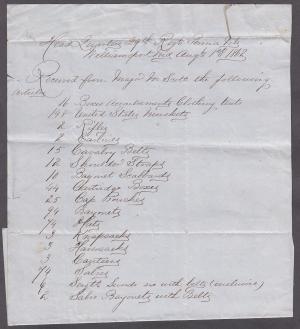 Head Quarters 29th Regt Penna Vols
Williamsport Md Augt 1st 1862
Received from Major M Scott the following
articles
16 Boxes Clothing tents
198 United States Muskets
2 Rifles
2 Carbines
15 Cavalry Belts
12 Shoulder Straps
10 Bayonet Scabbards
44 Cartridge Boxes
25 Cap Pouches
94 Bayonets
74 Hats
3 Knapsacks
3 Haversacks
3 Canteens
74 Sabres
6 Swords with belts
2 Sabre Bayonets with Belts